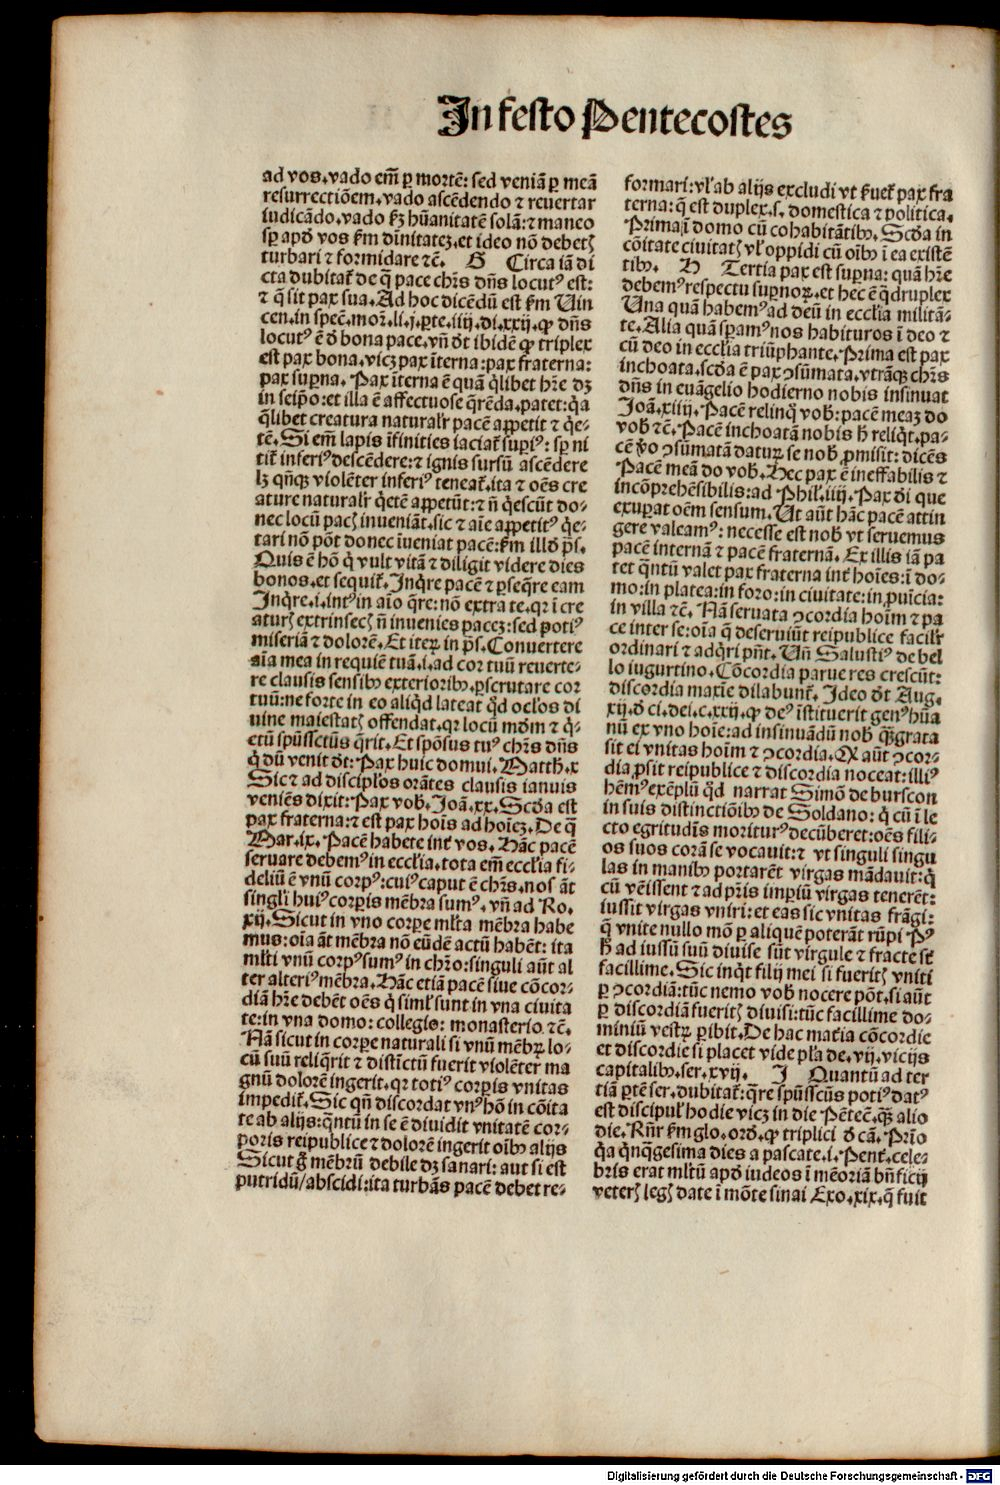 In festo Pentecostes
ad vos. vado em̄ ꝑ mortē: sed veniā ꝑ meā
resurrectiōem. vado ascēdendo ⁊ reuertar
iudicādo. vado ẜm hūanitatē solā: ⁊ maneo
sꝑ apd̓ vos ẜm diuinitatez. et ideo nō debetꝭ
turbari ⁊ formidare ⁊c̄. G Circa iā di
cta dubitat̄ de q̄ pace chr̄s dn̄s locutꝰ est:
⁊ q̄ sit pax sua. Ad hoc dicēdū est ẜm Uin
cen. in specē. moꝛ. li. j. ꝑte. iiij. di. xxij. ꝙ dn̄s
locutꝰ ē d̓ bona pace. vn̄ dt̄ ibidē ꝙ triplex
est pax bona. vicꝫ pax īterna: pax fraterna:
pax suꝑna. Pax īterna ē quā qͥlibet hr̄e dꝫ
in seip̄o: et illa ē affectuose q̄rēda. patet: qꝛ
q̄libet creatura naturalr̄ pacē appetit ⁊ q̄e-
tē. Si em̄ lapis īfinities iaciat̄ suꝑiꝰ: sꝑ ni
tit̄ inferiꝰ descēdere: ⁊ ignis sursū ascēdere
lꝫ qn̄qꝫ violēter inferiꝰ teneat̄. ita ⁊ oēs cre
ature naturalr̄ qͥetē appetūt: ⁊ n̄ qͥescūt do-
nec locū pacꝭ inueniāt. sic ⁊ aīe appetitꝰ qͥe-
tari nō pōt donec īueniat pacē: ẜm illd̓ pͣs.
Quis ē hō qͥ vult vitā ⁊ diligit videre dies
bonos. et sequit̄. Inqͥre pacē ⁊ ꝑseqͣre eam
Inqͥre. i. intꝰ in aīo qͣre: nō extra te. qꝛ ī cre
aturꝭ extrinsecꝭ n̄ inuenies pacez: sed potiꝰ
miseriā ⁊ dolorē. Et iteꝝ in pͣs. Conuertere
aīa mea in requiē tuā. i. ad cor tuū reuerte-
re clausis sensibꝰ exterioribꝰ. ꝑscrutare cor
tuū: ne forte in eo aliqͥd lateat qͥd ocl̓os di
uine maiestatꝭ offendat. qꝛ locū mūdm ⁊ qͥ-
etū spūssctūs q̄rit. Et spōsus tuꝰ chr̄s dn̄s
qͥ dū venit dt̄: Pax huic domui. Matth. x
Sic ⁊ ad discipl̓os orātes clausis ianuis
veniēs dixit: Pax vob̄. Joā. xx. Scd̓a est
pax fraterna: ⁊ est pax hoīs ad hoīez. De q̄
Mar. ix. Pacē habete int̄ vos. Hāc pacē
seruare debemꝰ in eccl̓ia. tota em̄ eccl̓ia fi-
deliū ē vnū corpꝰ: cuiꝰ caput ē chr̄s. nos āt
singl̓i huiꝰ corꝑis mēbra sumꝰ. vn̄ ad Ro.
xij. Sicut in vno corꝑe ml̓ta mēbra habe
mus: oīa āt mēbra nō eūdē actū habēt: ita
ml̓ti vnū corpꝰ sumꝰ in chr̄o: singuli aūt al
ter alteriꝰ mēbra. Hāc etiā pacē siue cōcor-
diā hr̄e debēt oēs qͥ siml̓ sunt in vna ciuita
te: in vna domo: collegio: monasterio ⁊c̄.
Nā sicut in corꝑe naturali si vnū mēbꝝ lo-
cū suū reliqͥrit ⁊ distīctū fuerit violēter ma
gnū dolorē ingerit. qꝛ totiꝰ corꝑis vnitas
impedit̄. Sic qn̄ discordat vnꝰ hō in cōita
te ab alijs: qͣntū in se ē diuidit vnitatē cor-
poris reipublice ⁊ dolorē ingerit oībꝰ alijs
Sicut g̊ mēbrū debile dꝫ sanari: aut si est
putridū / abscidi: ita turbās pacē debet re-
formari: vl̓ ab alijs excludi vt ẜuet̄ pax fra
terna: q̄ est duplex. s. domestica ⁊ politica.
Prima ī domo cū cohabitātibꝰ. Scd̓a in
cōitate ciuitatꝭ vl̓ oppidi cū oībꝰ ī ea existē
tibꝰ. H Tertia pax est suꝑna: quā hr̄e
debemꝰ respectu suꝑnoꝝ. et hec ē qͣdruplex
Una quā habemꝰ ad deū in eccl̓ia militā-
te. Alia quā sꝑamꝰ nos habituros ī deo ⁊
cū deo in eccl̓ia triūphante. Prima est pax
inchoata. scd̓a ē pax ꝯsūmata. vtrāqꝫ chr̄s
dn̄s in euāgelio hodierno nobis insinuat
Joā. xiiij. Pacē relinqͦ vob̄: pacē meaz do
vob̄ ⁊c̄. Pacē inchoatā nobis h̄ reliqͥt. pa-
cē v̓o ꝯsūmatā datuꝝ se nob̄ ꝓmisit: dicēs
Pacē meā do vob̄. Hec pax ē ineffabilis ⁊
incōprehēsibilis: ad Phil̓. iiij. Pax dei que
exuꝑat oēm sensum. Ut aūt hāc pacē attin
gere valeamꝰ: necesse est nob̄ vt seruemus
pacē internā ⁊ pacē fraternā. Ex illis iā pa
tet qͣntū valet pax fraterna int̄ hoīes: ī do-
mo: in platea: in foro: in ciuitate: in ꝓuīcia:
in villa ⁊c̄. Nā seruata ꝯcordia hoīm ⁊ pa
ce inter se: oīa q̄ deseruiūt reipublice facilr̄
ordinari ⁊ adqͥri pn̄t. Un̄ Salustiꝰ de bel
lo iugurtino. Cōcordia parue res crescūt:
discordia maxīe dilabunt̄. Ideo dt̄ Aug.
xij. d̓ ci. dei. c. xxij. ꝙ deꝰ īstituerit genꝰ hūa
nū ex vno hoīe: ad insinuādū nob̄ qͣꝫ grata
sit ei vnitas hoīm ⁊ ꝯcordia. Q aūt ꝯcor-
dia ꝓsit reipublice ⁊ discordia noceat: illiꝰ
hēmꝰ exēplū qd̓ narrat Simō de burscon
in suis distinctiōibꝰ de Soldano: qͥ cū ī le
cto egritudīs moriturꝰ decūberet: oēs fili-
os suos corā se vocauit: ⁊ vt singuli singu
las in manibꝰ portarēt virgas mādauit: qͥ
cū vēissent ⁊ ad pr̄is impiū virgas tenerēt:
iussit virgas vniri: et eas sic vnitas frāgi:
q̄ vnite nullo mō ꝑ aliquē poterāt rūpi Pꝰ
h̄ ad iussū suū diuise sūt virgule ⁊ fracte st̄
facillime. Sic inqͥt filij mei si fueritꝭ vniti
ꝑ ꝯcordiā: tūc nemo vob̄ nocere pōt. si aūt
ꝑ discordiā fueritꝭ diuisi: tūc facillime do-
miniū vestꝝ ꝑibit. De hac mat̄ia cōcordie
et discordie si placet vide pl̓a de. vij. vicijs
capitalibꝰ. ser. xvij. J Quantū ad ter
tiā ꝑtē ser. dubitat̄: qͣre spūsscūs potiꝰ datꝰ
est discipul̓ hodie vicꝫ in die Pētec̄. qͣꝫ alio
die. Rn̄r ẜm glo. ord̓. ꝙ triplici d̓ cā. Pr̄io
qꝛ qͥnqͣgesima dies a pascate. i. Pent̄. cele-
bris erat ml̓tū apd̓ iudeos ī mēoriā bn̄ficij
veterꝭ legꝭ date ī mōte sinai Exo. xix. q̄ fuit
Digitalisierung gefördert durch die Deutsche Forschungsgemeinschaft - DFG